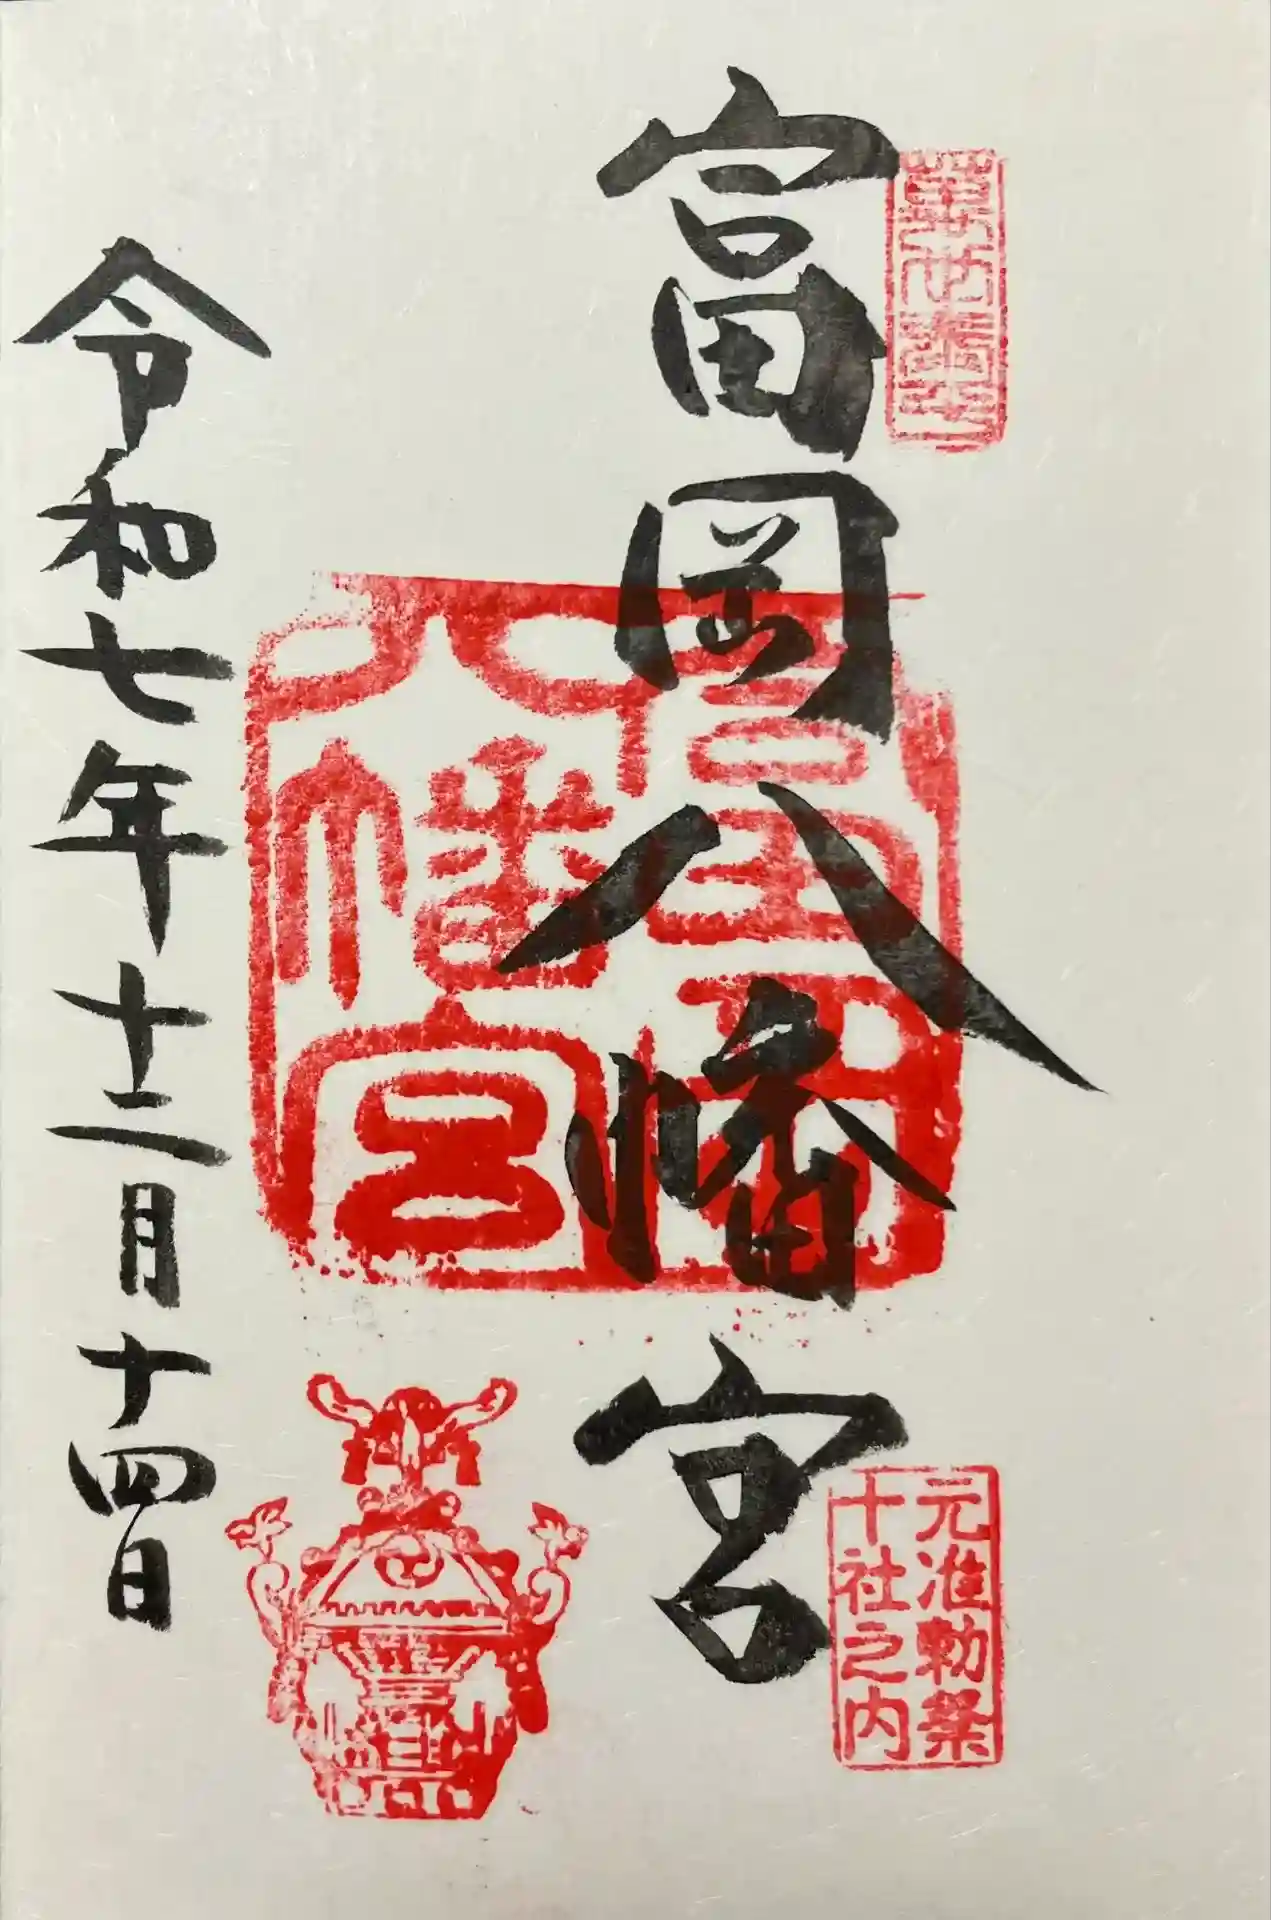 富岡八幡宮
富岡
八幡宮
元准勅祭
十社之内
令和七年十二月十四日